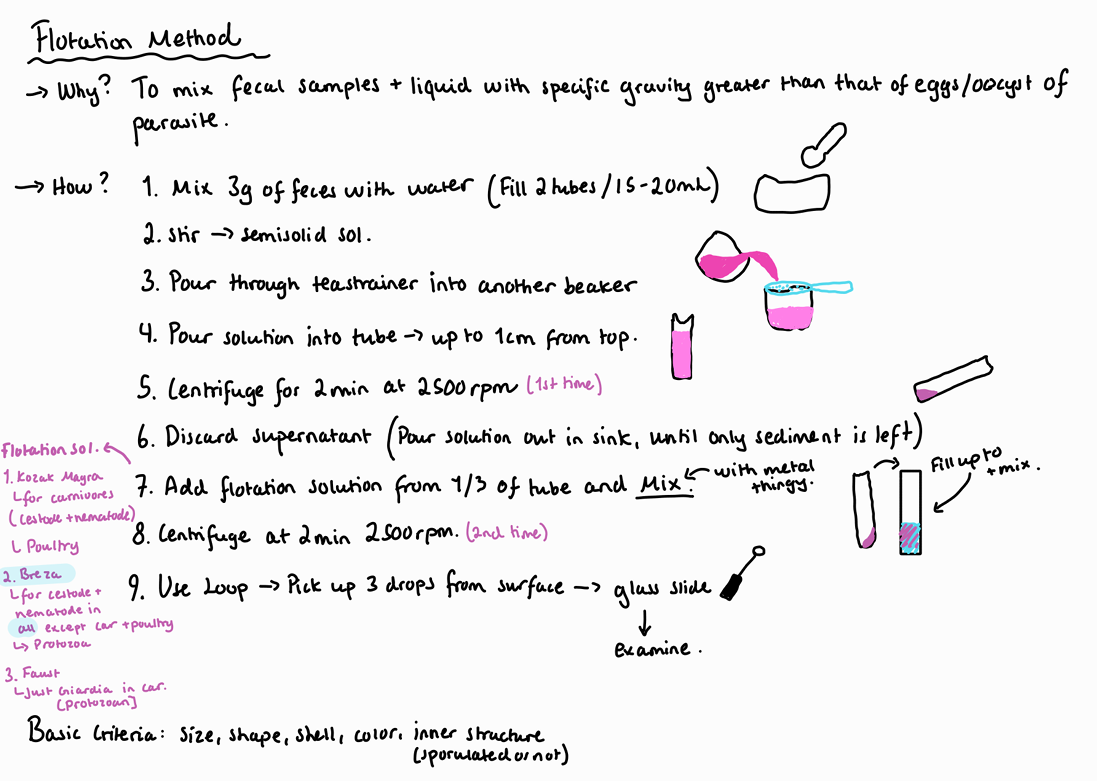 Flotation Method
→ Why? To mix fecal samples + liquid with specific gravity greater than that of eggs/oocyst of
parasite.
→ How? 1. Mix 3g of feces with water (Fill 2 tubes / 15-20mL)
2. Stir → semisolid sol.
3. Pour through teastrainer into another beaker
4. Pour solution into tube → up to 1cm from top.
5. Centrifuge for 2 min at 2500 rpm (1st time)
6. Discard supernatant (Pour solution out in sink, until only sediment is left)
7. Add flotation solution from 1/3 of tube and Mix. ← with metal
thingy.
Fill up to
+ mix.
8. Centrifuge at 2 min 2500 rpm. (2nd time)
9. Use Loop → Pick up 3 drops from surface → glass slide
↓
examine.
Flotation sol.
1. Kozak Mayra
↳ for carnivores
(cestode + nematode)
↳ Poultry
2. Breza
↳ for cestode +
nematode in
all except car + poultry
↳ Protozoa
3. Faust
↳ Just Giardia in car.
[protozoan]
Basic Criteria: size, shape, shell, color, inner structure
(sporulated or not)